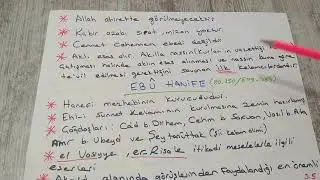 Allah ahirette görülmeyecektir.
Kabir azabı, sırat, mizan yoktur.
Cennet Cehennem ebedi değildir.
Akıl esas dır. Akılla nassın (Kur'anın
çatışması halinde aklın esas alınması ve nassın buna göre
te'vil edilmesi gerektiğini savunan ilk kelamcılardandır.
EBÛ HANİFE
Hanefi mezhebinin kurucusudur.
Ehl-i Sünnet Kelamının kurulmasına zemin hazırlamış
Çağdaşları: Ca'd b. Dirhem, Cehm b. Safvan, Vasıl b. Ata
Amr b. Ubeyd ve Şeytanüttak (Şii kelam alimi)
el Vasiyye, er-Risale itikadi meselelerle ilgili
eserleri
alanında görüşlerinden faydalandığı en önemli